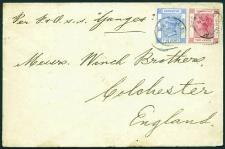 Per P. & O. s.s. "Ganges"
Messrs. Winch Brothers,
Colchester
England.